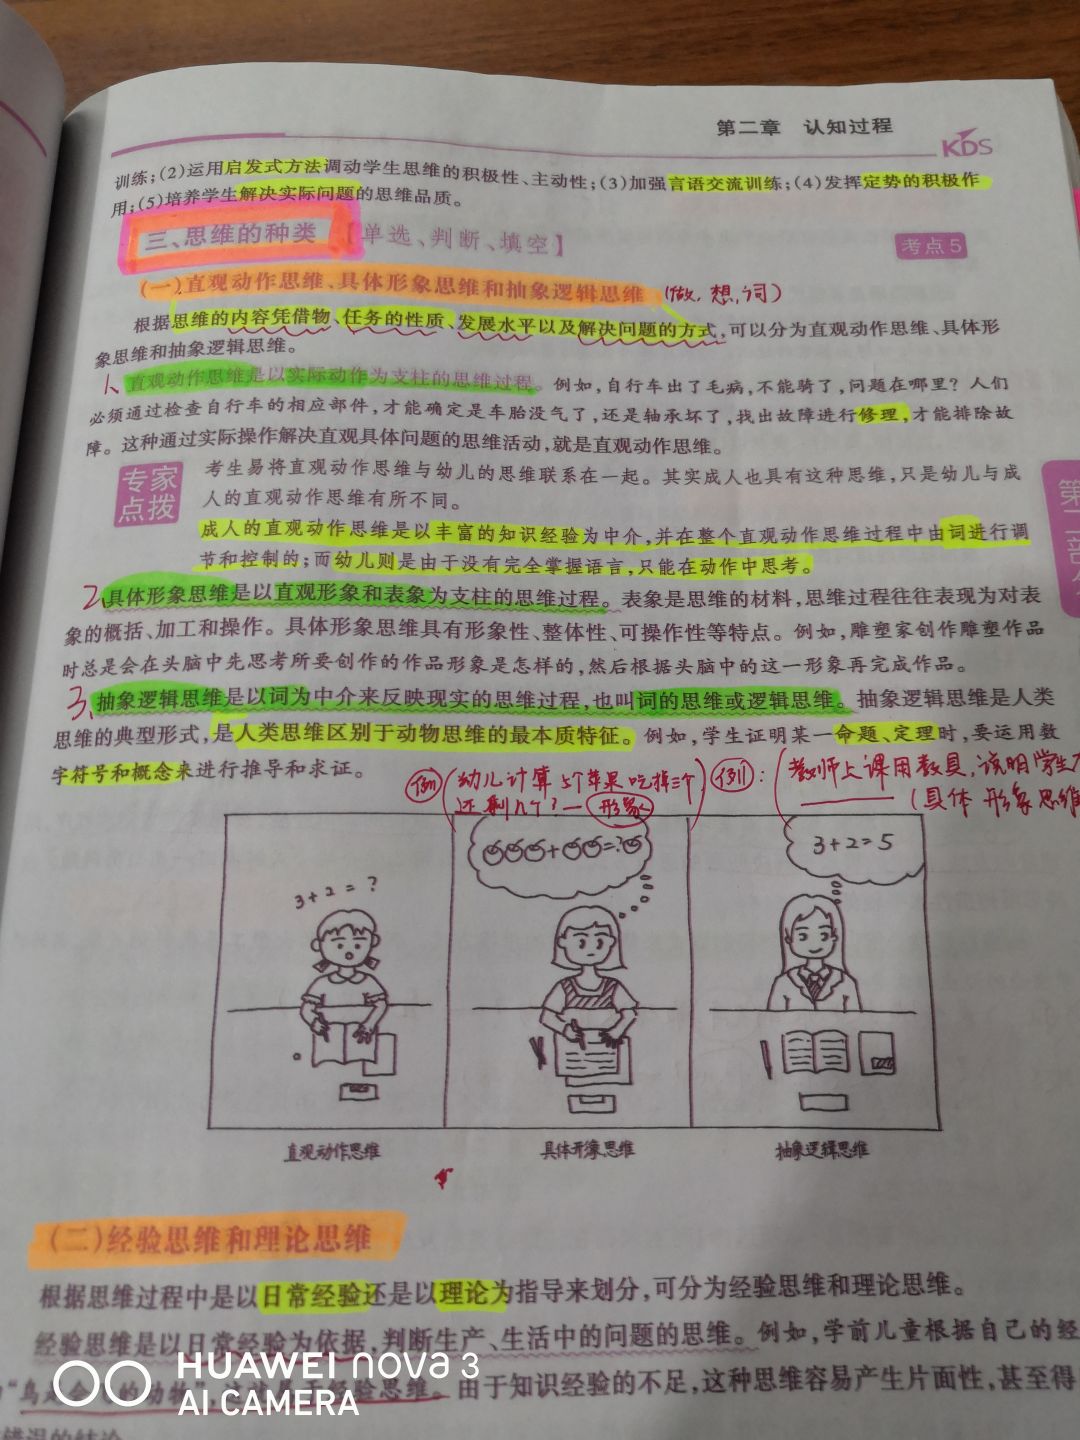 第二章 认知过程
KDS
训练;(2)运用启发式方法调动学生思维的积极性、主动性;(3)加强言语交流训练;(4)发挥定势的积极作
用;(5)培养学生解决实际问题的思维品质。
三、思维的种类 【单选、判断、填空】 考点5
(一)直观动作思维、具体形象思维和抽象逻辑思维 (做.想,词)
根据思维的内容凭借物、任务的性质、发展水平以及解决问题的方式,可以分为直观动作思维、具体形
象思维和抽象逻辑思维。
1、直观动作思维是以实际动作为支柱的思维过程。例如,自行车出了毛病,不能骑了,问题在哪里?人们
必须通过检查自行车的相应部件,才能确定是车胎没气了,还是轴承坏了,找出故障进行修理,才能排除故
障。这种通过实际操作解决直观具体问题的思维活动,就是直观动作思维。
专家点拨
考生易将直观动作思维与幼儿的思维联系在一起。其实成人也具有这种思维,只是幼儿与成
人的直观动作思维有所不同。
成人的直观动作思维是以丰富的知识经验为中介,并在整个直观动作思维过程中由词进行调
节和控制的;而幼儿则是由于没有完全掌握语言,只能在动作中思考。
第二部分
2、具体形象思维是以直观形象和表象为支柱的思维过程。表象是思维的材料,思维过程往往表现为对表
象的概括、加工和操作。具体形象思维具有形象性、整体性、可操作性等特点。例如,雕塑家创作雕塑作品
时总是会在头脑中先思考所要创作的作品形象是怎样的,然后根据头脑中的这一形象再完成作品。
3、抽象逻辑思维是以词为中介来反映现实的思维过程,也叫词的思维或逻辑思维。抽象逻辑思维是人类
思维的典型形式,是人类思维区别于动物思维的最本质特征。例如,学生证明某一命题、定理时,要运用数
字符号和概念来进行推导和求证。
例 (幼儿计算5个苹果吃掉三个,
还剩几个?—形象)
例:(教师上课用教具,说明学生
(具体形象思维
3+2=?
+ =?
3+2=5
直观动作思维
具体形象思维
抽象逻辑思维
(二)经验思维和理论思维
根据思维过程中是以日常经验还是以理论为指导来划分,可分为经验思维和理论思维。
经验思维是以日常经验为依据,判断生产、生活中的问题的思维。例如,学前儿童根据自己的经
经验思维。由于知识经验的不足,这种思维容易产生片面性,甚至得
错误的结论
HUAWEI nova 3
AI CAMERA